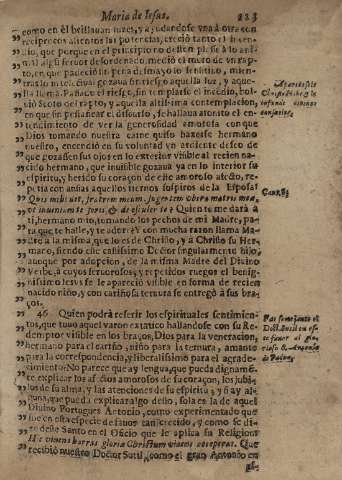 Maria de Iesus. 223
como en èl brillauan luzes, y ayudandose vna à otra con
reciprocos alientos las potencias, creciò tanto el incen-
dio, que porque en el principio no desten plasse à lo ani-
mal algun feruor desordenado, mediò el muro de vn rap-
to, en que padeciò su pena desmayo lo sensitiuo, mien-
tras lo intelectiual gozaua sin riesgo aquella luz, y aque-
lla llama. Passado el riesgo, sin templarse el incendio, bol-
uiò Scoto del rapto, y aquella altissima contemplacion,
en que sin pensar ni discurso, se hallaua atonito el en-
tendimiento de ver la generosidad amorosa con que
Dios tomando nuestra carne quiso hazerse hermano
nuestro, encendiò en su voluntad vn ardiente deseo de
que gozassen sus ojos en lo exterior visible al recien na-
cido hermano, que inuisible gozaua ya en lo interior su
espiritu, y herido su coraçon de este amoroso afecto, re-
petia con ansias aquellos tiernos suspiros de la Esposa:
Quis mihi det, fratrem meum, sugentem vbera matris meæ,
vt inueniam te foris, & deosculer te? Quien te me darà à
ti, hermano mio, tomando los pechos de mi Madre, pa-
ra que te halle, y te adore? Y con mucha razon llama Ma-
dre à la misma, que lo es de Christo, y à Christo su Her-
mano, siendo este castissimo Doctor singular hijo,
aunque por adopcion, de la misma Madre del Diuino
Verbo, à cuyos feruorosos, y repetidos ruegos el benig-
nissimo Iesus se le apareciò visible en forma de recien
nacido niño, y con cariñosa ternura se entregò à sus bra-
ços.
46 Quien podrà referir los espirituales sentimien-
tos, que tuuo aquel varon extatico hallandose con su Re-
demptor visible en los braços, Dios para la veneracion,
hermano para el cariño, niño para la ternura, amante
para la correspondencia, y liberalissimo para el agrade-
cimiento? No parece que ay lengua, que pueda dignamē-
te explicar los afectos amorosos de su coraçon, los jubi-
los de su alma, y las atenciones de su espiritu, y si ay al-
guna, que pueda explicar algo dello, sola es la de aquel
Diuino Portugues Antonio, como experimentado que
fue en esta especie de fauor tan crecido, y como se di-
ze deste Santo en el Oficio que le aplica su Religion:
Hic viuens harens gloria Christum viuens acceperat. Que
recibiò nuestro Doctor Sutil, como el gran Antonio en
Aparecesele
Christo niño, y le
infunde diuinos
consuelos.
Cant. 8.
Fue semejante el
Doct. Sutil en es-
te fauor al glo-
rioso S. Antonio
de Padua.